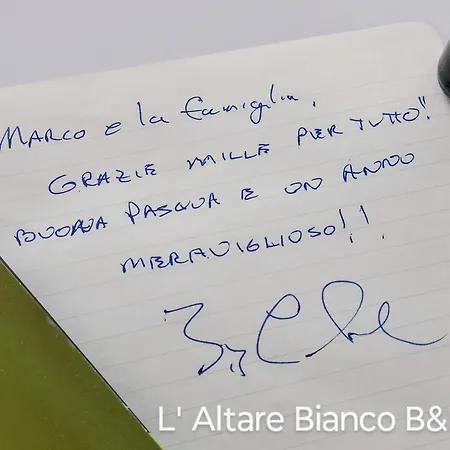 MARCO E la famiglia,
GRAZIE MILLE PER TUTTO!!
BUONA PASQUA E UN ANNO
MERAVIGLIOSO!!
L' Altare Bianco B&